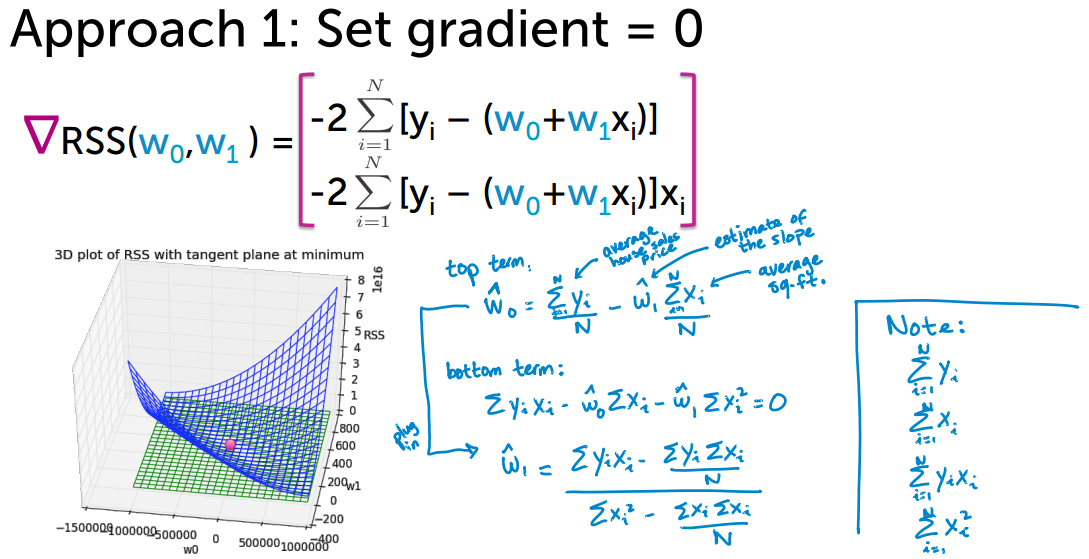 Approach 1: Set gradient = 0
∇RSS(w₀,w₁ ) = [
-2 ∑_{i=1}^{N} [yᵢ – (w₀+w₁xᵢ)]
-2 ∑_{i=1}^{N} [yᵢ – (w₀+w₁xᵢ)]xᵢ
]
3D plot of RSS with tangent plane at minimum
1e16
8
7
6
5
4
3
2
1
0
RSS
800
600
400
200
0
−200
−400
w1
−1500000 −1000000 −500000 0 500000 1000000
w0
top term:
average house sales price
estimate of the slope
average sq.ft.
ŵ₀ = ∑_{i=1}^{N} yᵢ / N - ŵ₁ ∑_{i=1}^{N} xᵢ / N
bottom term:
∑yᵢxᵢ - ŵ₀∑xᵢ - ŵ₁∑xᵢ² = 0
plug in
ŵ₁ = (∑yᵢxᵢ - ∑yᵢ∑xᵢ / N) / (∑xᵢ² - ∑xᵢ∑xᵢ / N)
Note:
∑_{i=1}^{N} yᵢ
∑_{i=1}^{N} xᵢ
∑_{i=1}^{N} yᵢxᵢ
∑_{i=1}^{N} xᵢ²